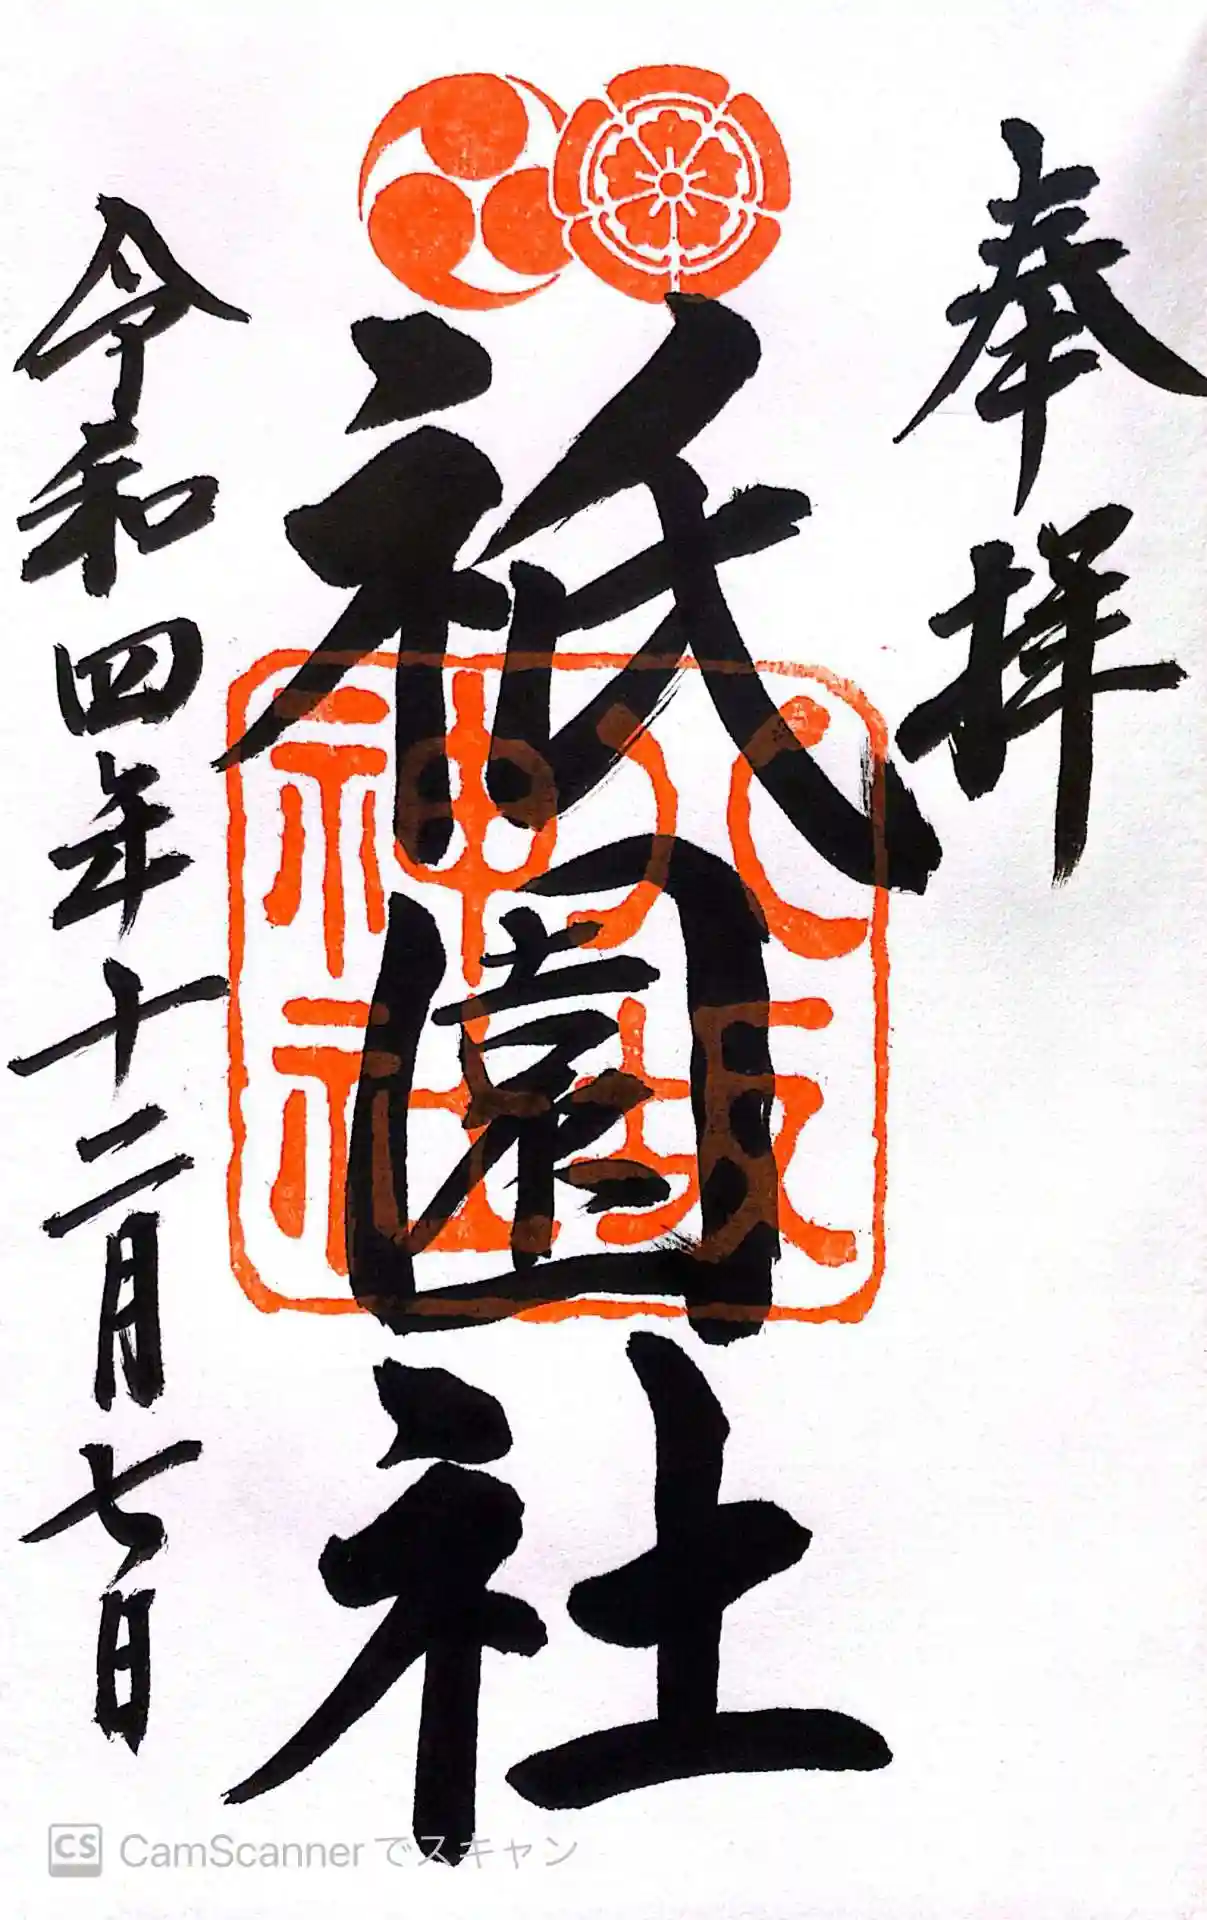 奉拝
祇園社
八坂
神社
令和四年十二月七日
CS CamScannerでスキャン